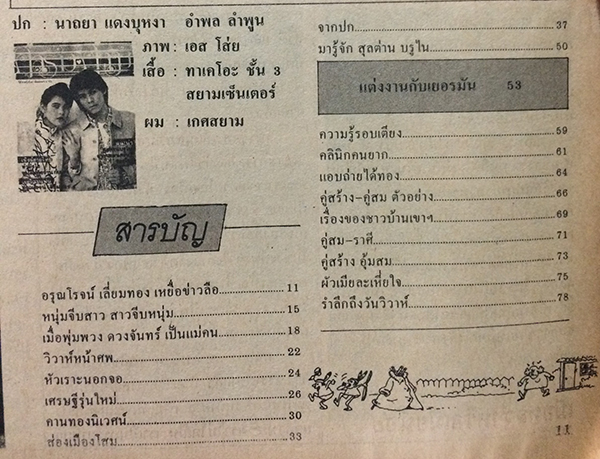 ปก : นาถยา แดงบุหงา อำพล ลำพูน
ภาพ : เอส โส่ย
เสื้อ : ทาเคโอะ ชั้น 3
สยามเซ็นเตอร์
ผม : เกศสยาม
สารบัญ
อรุณโรจน์ เลี่ยมทอง เหยื่อข่าวลือ 11
หนุ่มจีบสาว สาวจีบหนุ่ม 15
เมื่อพุ่มพวง ดวงจันทร์ เป็นแม่คน 18
วิวาห์หน้าศพ 22
หัวเราะนอกจอ 24
เศรษฐีรุ่นใหม่ 26
คานทองนิเวศน์ 30
ส่องเมืองไสม 33
จากปก 37
มารู้จัก สุลต่าน บรูไน 50
แต่งงานกับเยอรมัน 53
ความรู้รอบเตียง 59
คลินิกคนยาก 61
แอบถ่ายได้ทอง 64
คู่สร้าง-คู่สม ตัวอย่าง 66
เรื่องของชาวบ้านเขาฯ 69
คู่สม-ราศี 71
คู่สร้าง อุ้มสม 73
ผัวเมียละเหี่ยใจ 75
รำลึกถึงวันวิวาห์ 78
11